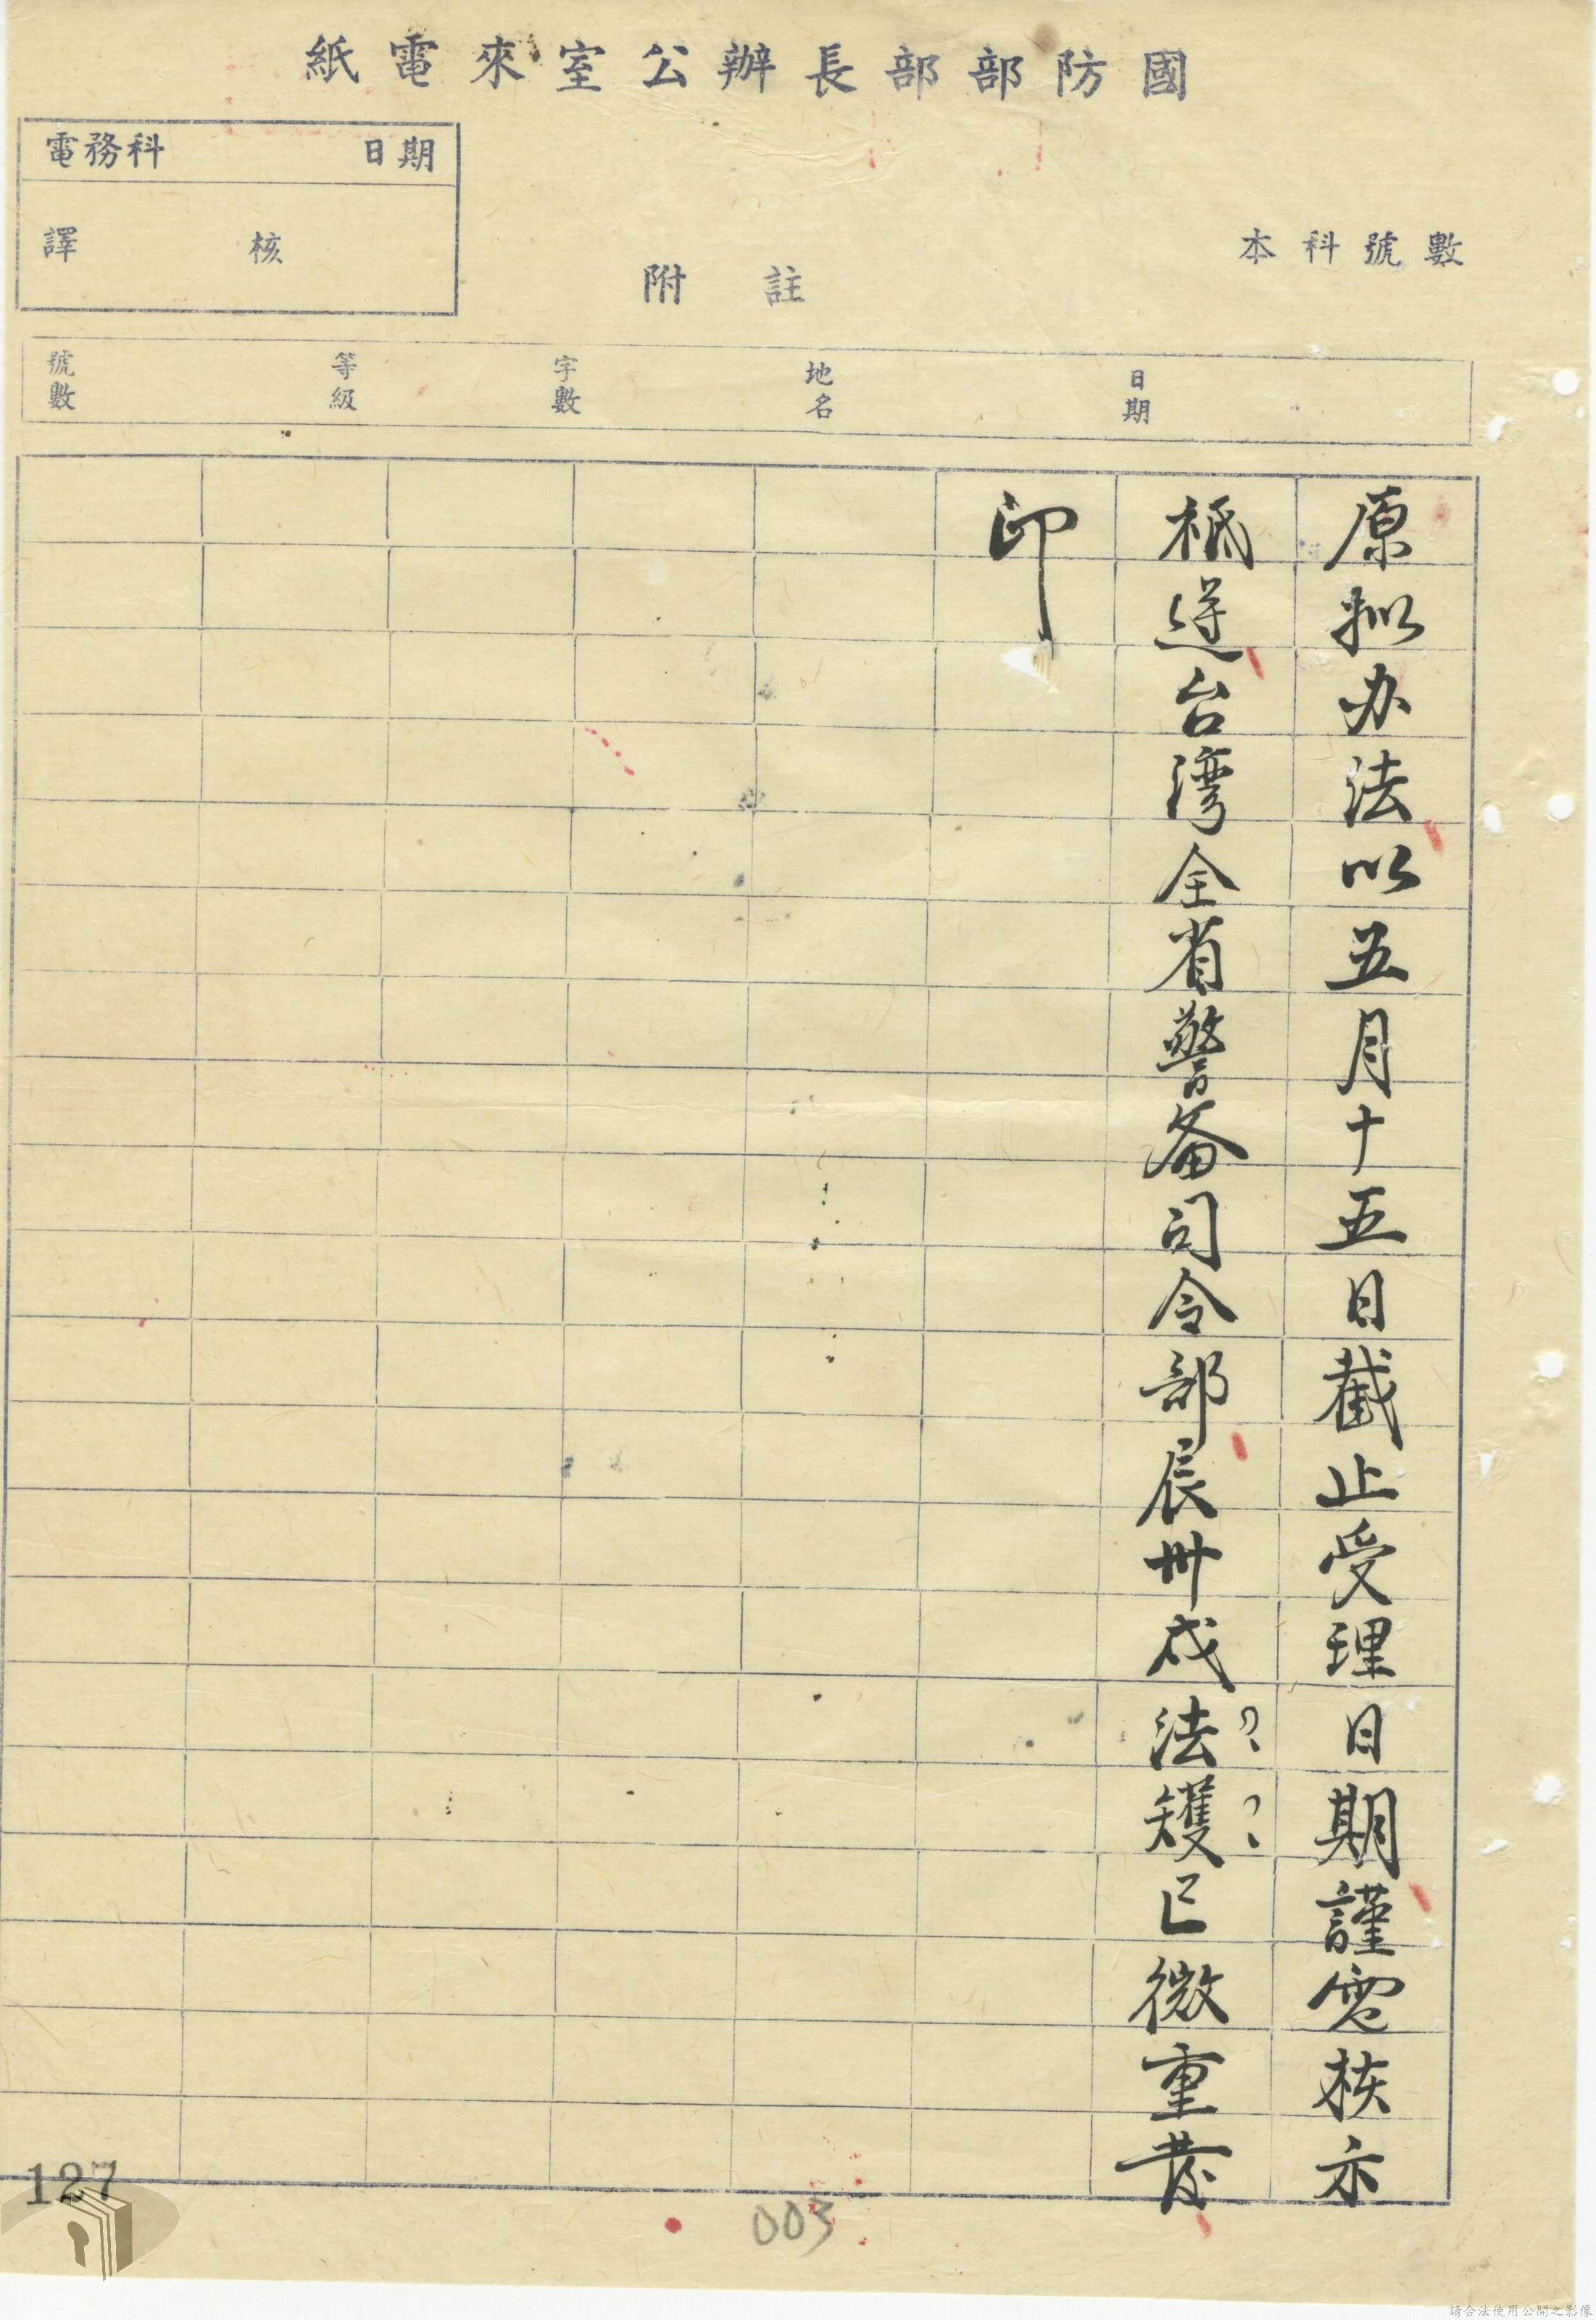 國防部部長辦公室來電紙
電務科 日期
譯 核
附註
本科號數
號數 等級 字數 地名 日期
原拟办法以五月十五日截止受理日期謹電核示
祗遵台湾全省警备司令部辰卅戌法?矱?巳微重發
印
127
003
請合法使用公開之影像